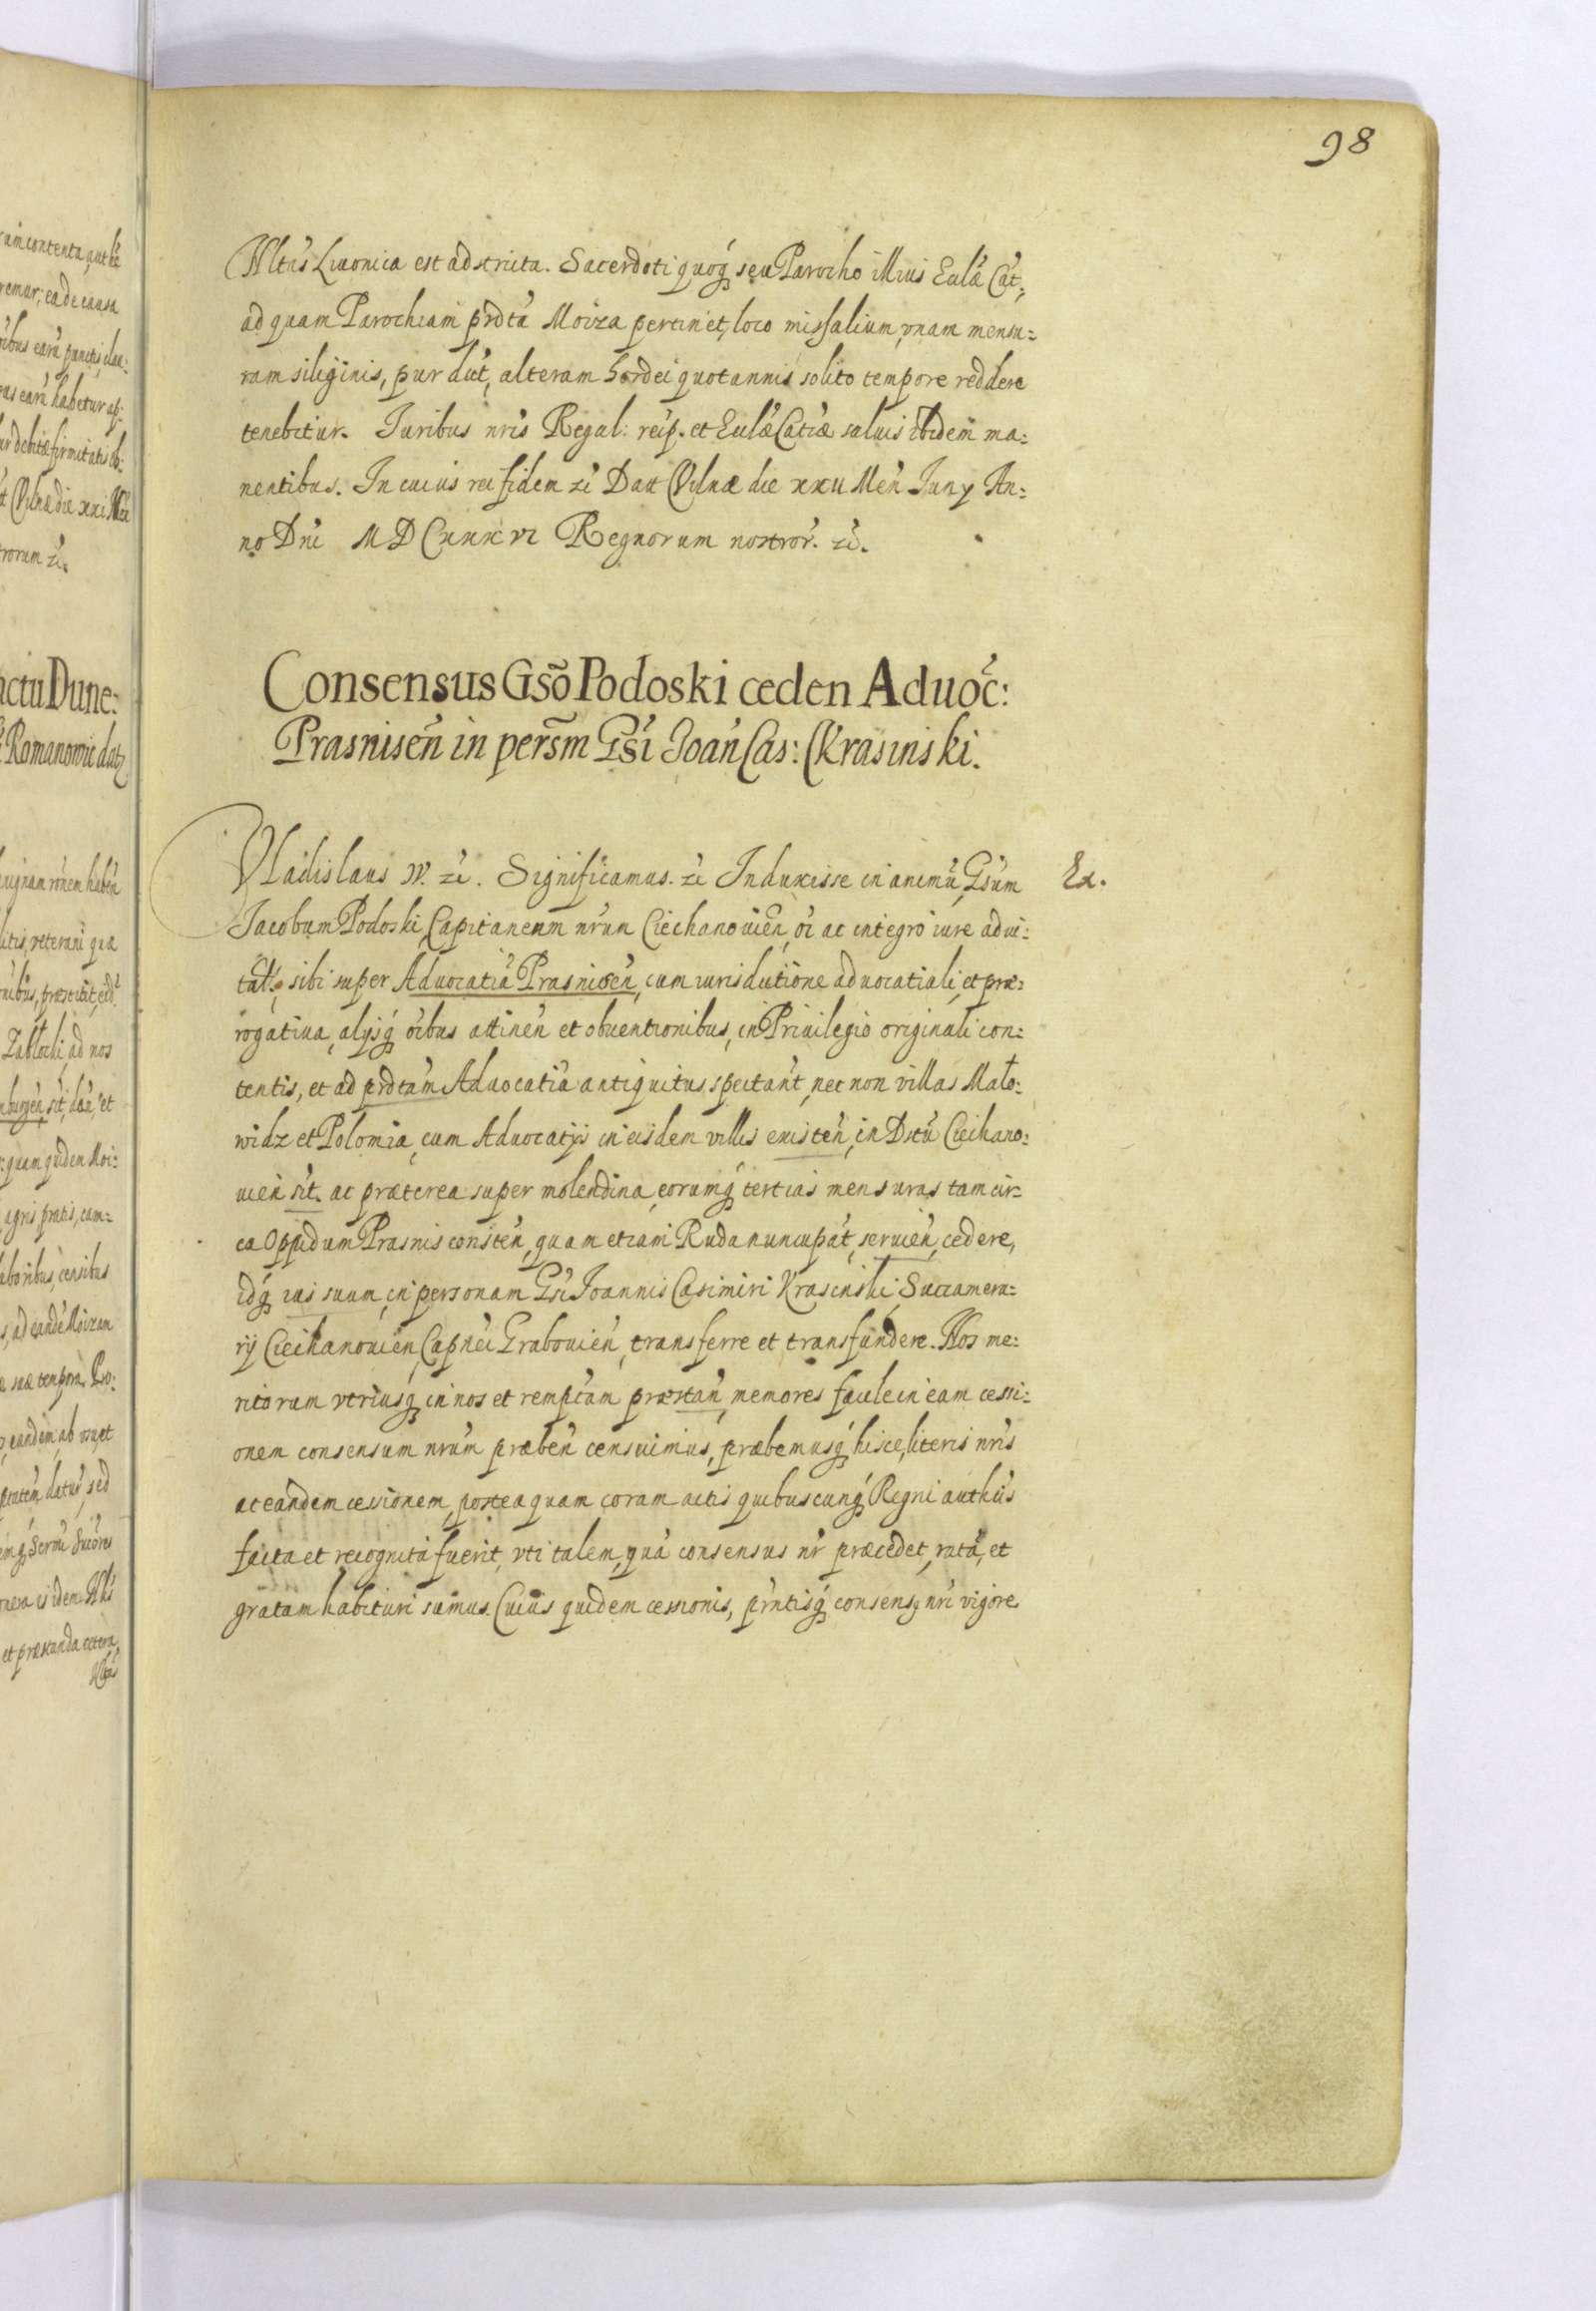 98
Nltas Liuonica est adstricta. Sacerdoti quoq́ seu Parocho illius Eulæ Cat:,
ad quam Parochiam prdta Moiza pertinet, loco missalium, vnam mensu:
ram siliginis, pur dict, alteram hordei quotannis solito tempore reddere
tenebitur. Iuribus nris Regal: reip. et Eulæ Catiæ saluis ibidem ma:
nentibus. In cuius rei fidem zc̃ Datt Vilnæ die xxii Men̄ Iuny An:
no Dni MDCxxxvi Regnorum nostror. zc̃.
Consensus Gso Podoski ceden Aduoc:
Prasnisen̄ in persm̄ Gsi Ioan̄ Cas: Krasinski.
Vladislaus IV. zc̃. Significamus. zc̃ Induxisse in animū Gsum
Ex.
Iacobum Podoski, Capitaneum nrum Ciechanouien̄, oi ac integro iure adui:
tali, sibi super Aduocatiā Prasnisen̄, cum iurisdictione aduocatiali, et præ:
rogatiua, alysq́ oibus attinen̄ et obuentionibus, in Priuilegio originali con:
tentis, et ad prdtam Aduocatiā antiquitus spectant, nec non villas Mało:
widz et Polomia, cum Aduocatys in eisdem villis existen̄, in Dstu Ciechano:
uien̄ sit. ac præterea super molendina, eorumq́ tertias mensuras tam cir:
ca Oppidum Prasnis consten̄, quam etiam Ruda nuncupat, seruien̄, cedere,
idq́ ius suum, in personam Gsi Ioannis Casimiri Krasinski, Succamera:
rij Ciechanouien, Capnei Grabouien̄, transferre et transfundere. Nos me:
ritorum vtriusq́ in nos et rempcam præstan̄, memores facile in eam cessi:
onem consensum nrum præben̄ censuimus, præbemusq́ hisce, literis nris
ac eandem cessionem, posteaquam coram actis quibuscunq́ Regni authcis
facta et recognita fuerit, vti talem, quā consensus nr præcedet, ratā, et
gratam habituri sumus. Cuius quidem cessionis, prntisq́ consens9 nri vigore